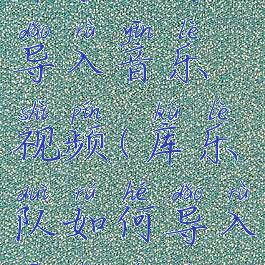 dǎo rù yīn lè
导入音乐
shì pín kù lè
视频(库乐
duì rú hé dǎo rù
队如何导入